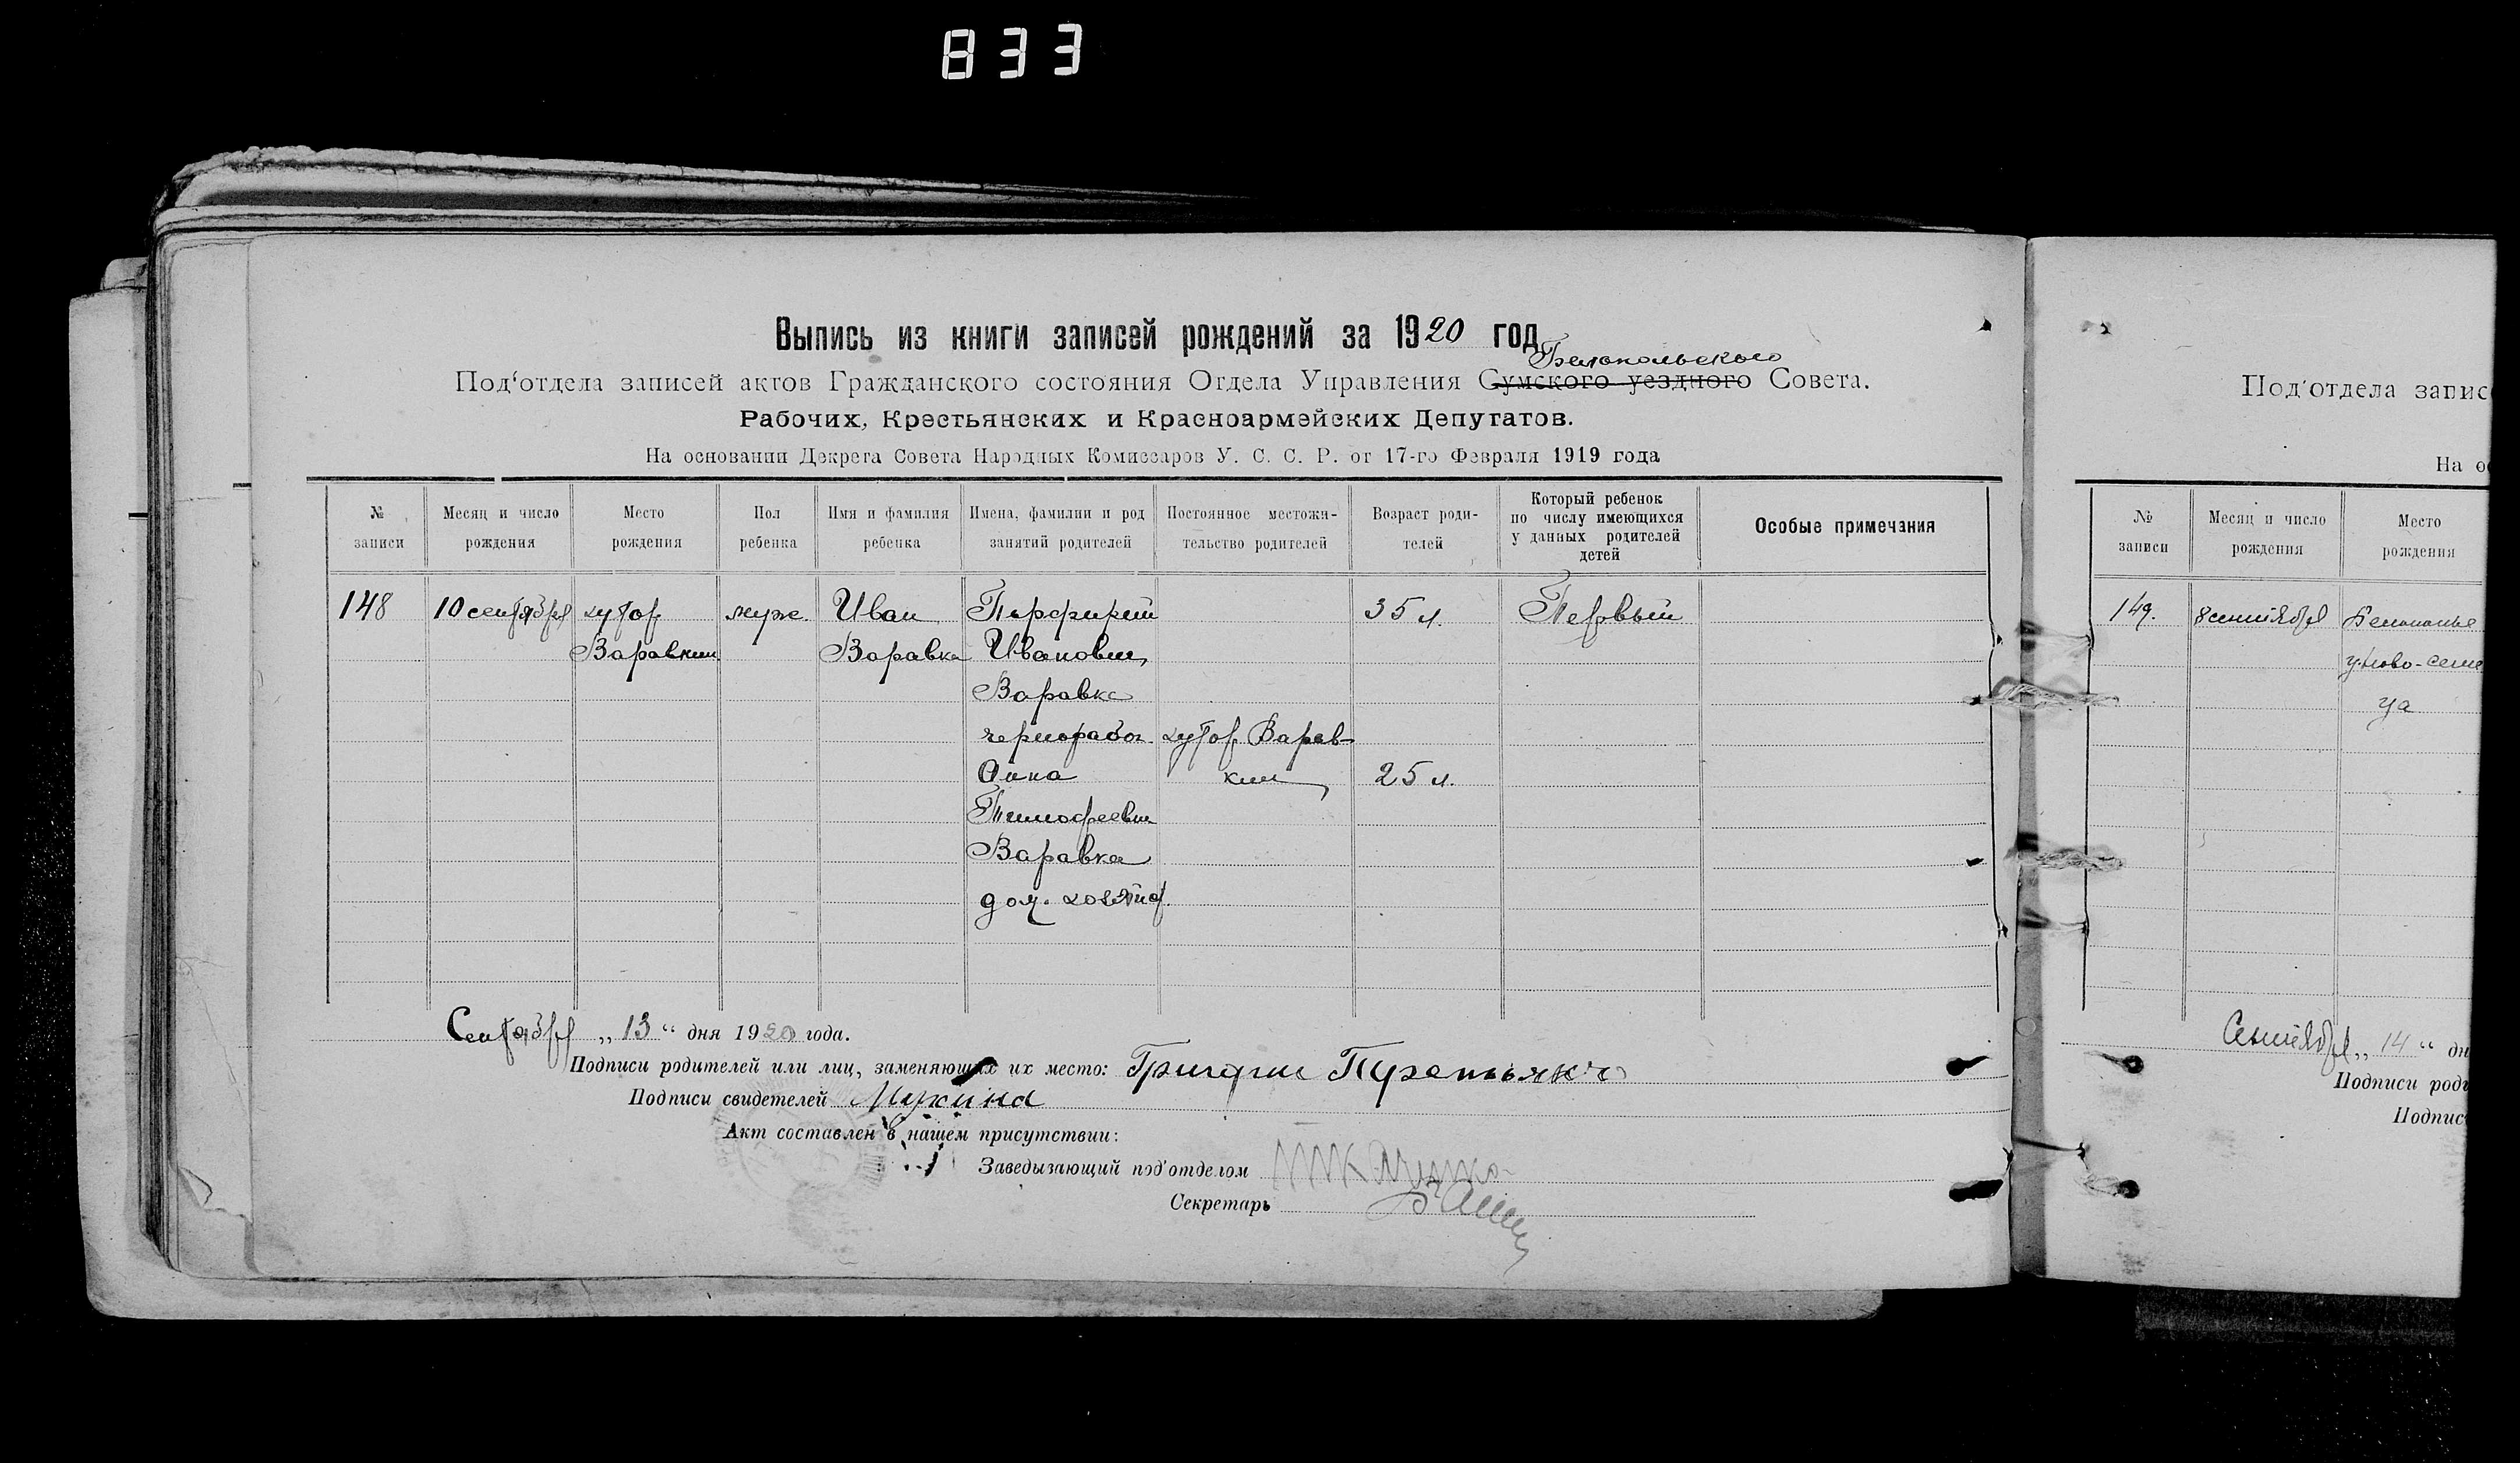 833
Выпись из книги записей рождений за 1920 год
Белопольского
Под'отдела записей актов Гражданского состояния Отдела Управления Сумского уездного Совета.
Рабочих, Крестьянских и Красноармейских Депутатов.
На основании Декрета Совета Народных Комиссаров У. С. С. Р. от 17-го Февраля 1919 года
№ записи
Месяц и число рождения
Место рождения
Пол ребенка
Имя и фамилия ребенка
Имена, фамилии и род занятий родителей
Постоянное местожительство родителей
Возраст родителей
Который ребенок по числу имеющихся у данных родителей детей
Особые примечания
148
10 сентября
хутор
Варавкин
муж.
Иван
Варавка
Порфирий
Иванович
Варавка
чернорабоч.
Анна
Тимофеевна
Варавка
дом. хозяйс.
хутор Варав-
кин
35 л.
25 л.
Первый
Сентября „ 13 “ дня 1920 года.
Подписи родителей или лиц, заменяющих их место: Григорий
Подписи свидетелей Мукина
Акт составлен в нашем присутствии:
Заведывающий под'отделом
Секретарь
Под'отдела запис
На ос
№ записи
Месяц и число рождения
Место рождения
149.
8 сентября
Белополье
Сентября „ 14 “ дн
Подписи роди
Подпис